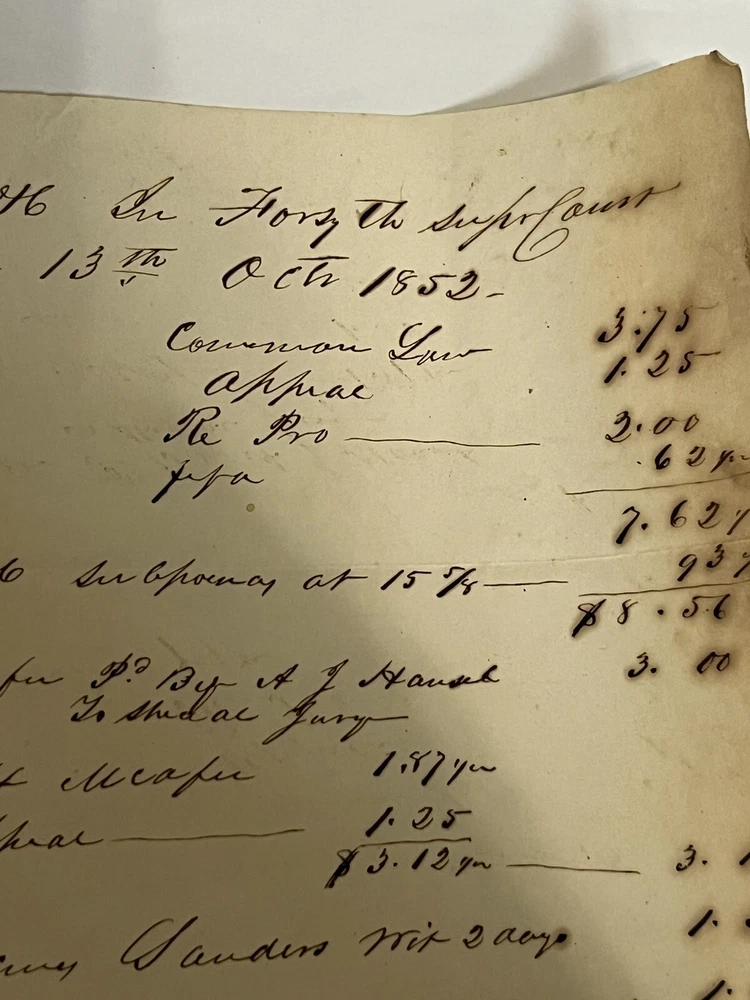 In Forsyth SuprCourt
13th Octr 1852-
Common Law 3.75
Appeal 1.25
Re Pro 2.00
fifa .62
7.62
6 Subpoenas at 15 5/8 93
$8.56
fee Pd By A J Hansel 3.00
To Special Jury
McAfee 1.87
peal 1.25
$3.12 3.
Sanders Wit 2 days 1.
1.